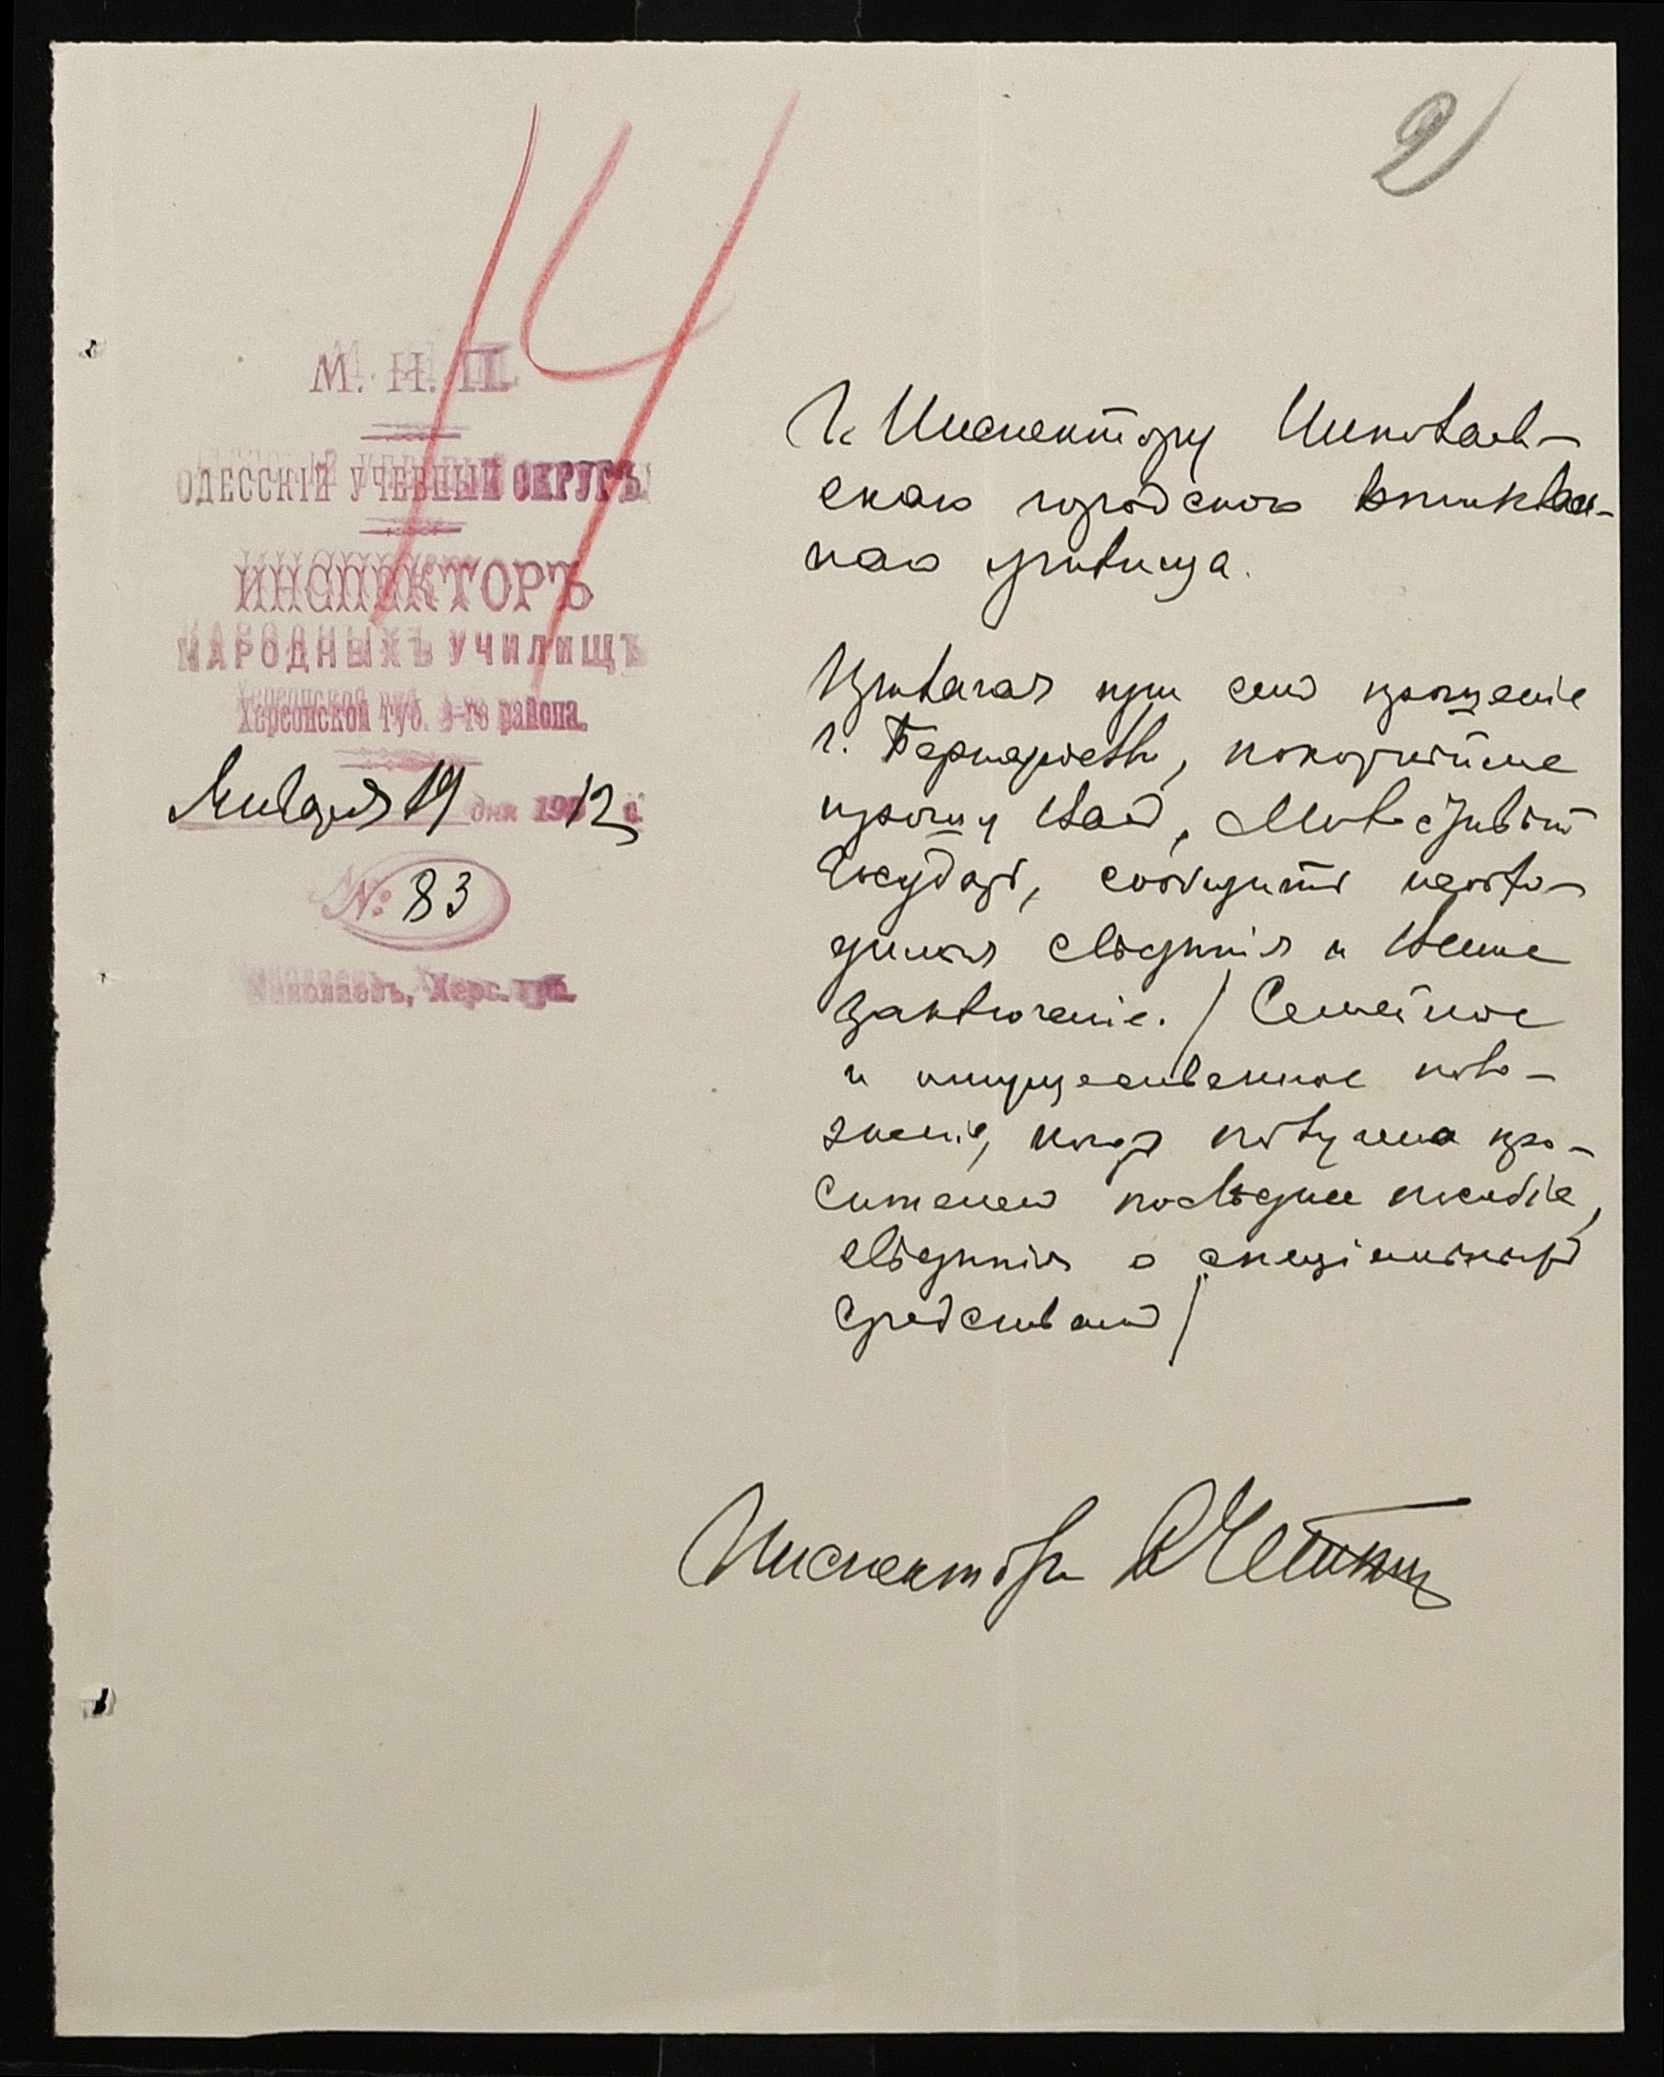 2
14
М. Н. П.
ОДЕССКІЙ УЧЕБНЫЙ ОКРУГЪ
ИНСПЕКТОРЪ
НАРОДНЫХЪ УЧИЛИЩЪ
Херсонской губ. района.
Января 19 дня 1912 г.
№ 83
Николаевъ, Херс. губ.
Г. Инспектору Николаев-
скаго городского
наго училища.
Прилагая при семъ прошеніе
г. покорнѣйше
прошу Васъ, Милостивый
Государь, сообщить необхо-
димыя свѣдѣнія и Ваше
заключеніе. / Семейное
и имущественное поло-
женіе, когда получено про-
сителемъ послѣднее пособіе,
свѣдѣнія о спеціальныхъ
средствахъ /
Инспекторъ